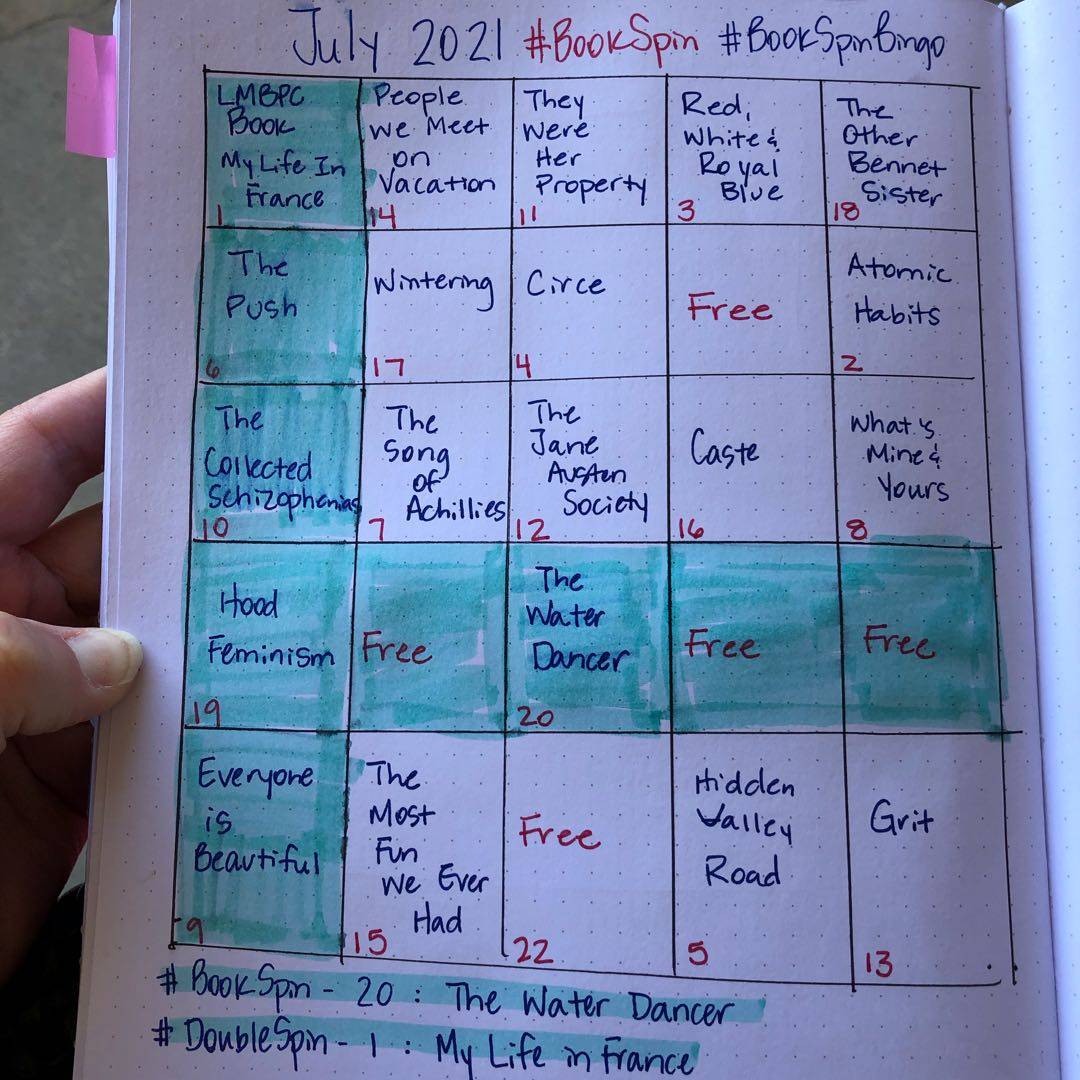 July 2021 #BookSpin #BookSpinBingo
LMBPC
Book
My Life In
France
1
People
We Meet
on
Vacation
14
They
Were
Her
Property
11
Red,
White &
Royal
Blue
3
The
Other
Bennet
Sister
18
The
Push
6
Wintering
17
Circe
4
Free
Atomic
Habits
2
The
Collected
Schizophenias
10
The
Song
of
Achillies
7
The
Jane
Austen
Society
12
Caste
16
What's
Mine &
Yours
8
Hood
Feminism
19
Free
The
Water
Dancer
20
Free
Free
Everyone
is
Beautiful
9
The
Most
Fun
We Ever
Had
15
Free
22
Hidden
Valley
Road
5
Grit
13
# BookSpin - 20 : The Water Dancer
# DoubleSpin - 1 : My Life in France